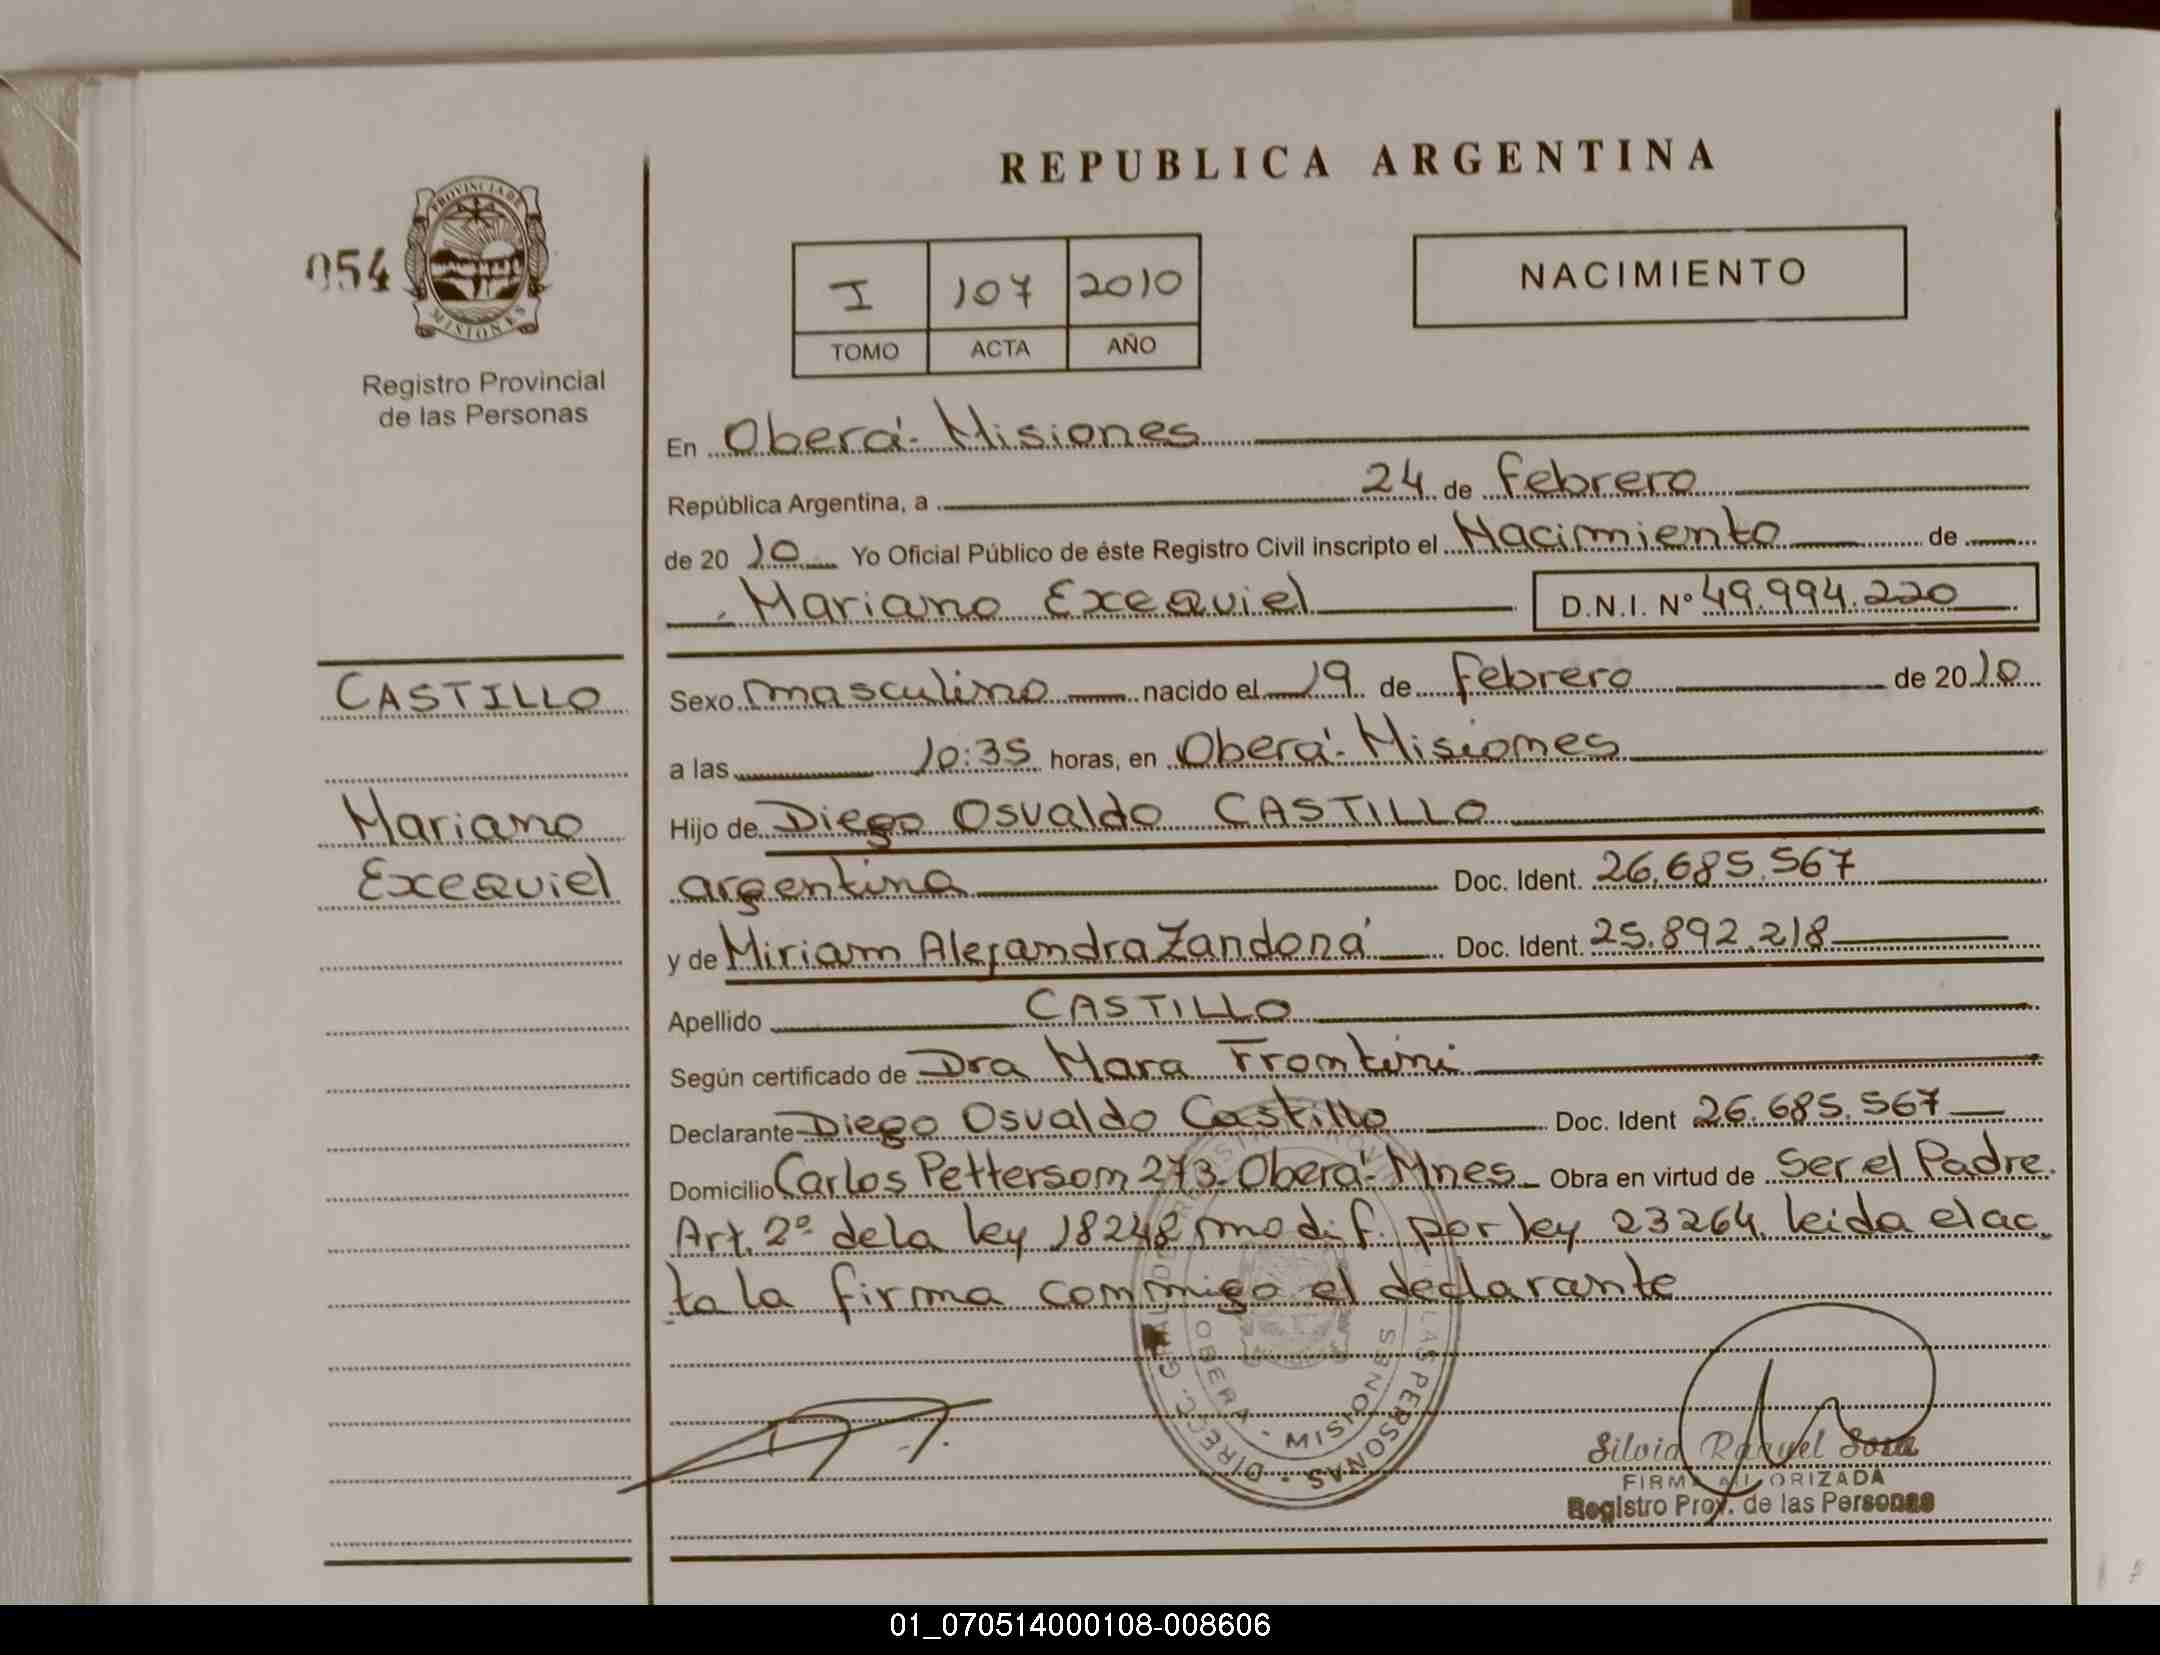 REPUBLICA ARGENTINA
054
PROVINCIA DE
MISIONES
Registro Provincial
de las Personas
I 107 2010
TOMO ACTA AÑO
NACIMIENTO
En Oberá - Misiones
República Argentina, a 24 de Febrero
de 20 10 Yo Oficial Público de éste Registro Civil inscripto el Nacimiento de
Mariano Exequiel D.N.I. Nº 49.994.220
CASTILLO
Mariano
Exequiel
Sexo masculino nacido el 19 de Febrero de 2010
a las 10:35 horas, en Oberá - Misiones
Hijo de Diego Osvaldo CASTILLO
argentina Doc. Ident. 26.685.567
y de Miriam Alejandra Zandoná Doc. Ident. 25.892.218
Apellido CASTILLO
Según certificado de Dra Mara Frontini
Declarante Diego Osvaldo Castillo Doc. Ident 26.685.567
Domicilio Carlos Petterson 273 - Oberá - Mnes Obra en virtud de Ser el Padre.
Art. 2º de la ley 18248 modif. por ley 23264. leida el ac
ta la firma conmigo el declarante
OBERA - MISIONES
LAS PERSONAS - DIRECC. GRAL.
Silvia Raquel Sosa
FIRMA AUTORIZADA
Registro Prov. de las Personas
01_070514000108-008606